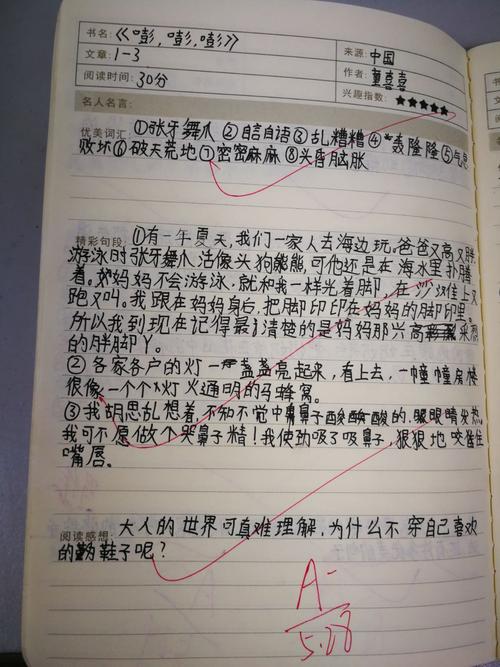 书名:《嘭,嘭,嘭》
来源:中国
文章:1-3
作者:童喜喜
阅读时间:30分
兴趣指数:★★★★★
名人名言:
优美词汇:①张牙舞爪 ②自言自语 ③乱糟糟 ④轰隆隆 ⑤气急
败坏 ⑥破天荒地 ⑦密密麻麻 ⑧头昏脑胀
精彩句段:①有一年夏天,我们一家人去海边玩。爸爸又高又胖
游泳时张牙舞爪活像头狗熊,可他还是在海水里扑腾
着。妈妈不会游泳,就和我一样光着脚,在沙滩上又
跑又叫。我跟在妈妈身后,把脚印印在妈妈的脚印里。
所以我到现在记得最清楚的是妈妈那兴高采烈
的胖脚丫。
②各家各户的灯一盏盏亮起来,看上去,一幢幢房楼
很像一个个灯火通明的马蜂窝。
③我胡思乱想着,不知不觉中鼻子酸酸的,眼睛发热。
我可不愿做个哭鼻子精!我使劲吸了吸鼻子,狠狠地咬住
嘴唇。
阅读感想:大人的世界可真难理解,为什么不穿自己喜欢
的鞋子呢?
A-
5.28